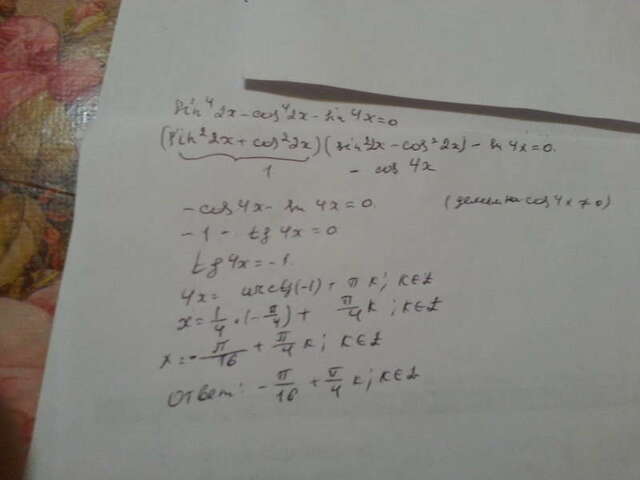 sin⁴2x-cos⁴2x-sin4x=0
(sin²2x+cos²2x)(sin²2x-cos²2x)-sin4x=0.
1 - cos4x
-cos4x-sin4x=0. (делим на cos4x≠0)
-1-tg4x=0
tg4x=-1.
4x= arctg(-1)+πk; k∈Z
x=1/4·(-π/4)+π/4k; k∈Z
x=-π/16+π/4k; k∈Z
Ответ: -π/16+π/4k; k∈Z